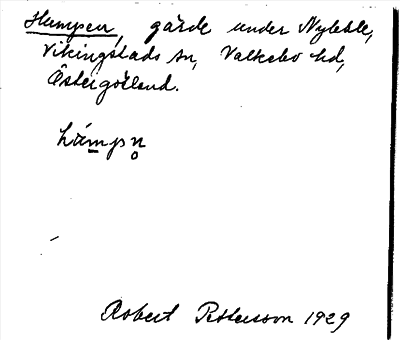 Humpen, gärde under Nyleble,
Vikingstads sn, Valkebo hd,
Östergötland.
Robert Pettersson 1929